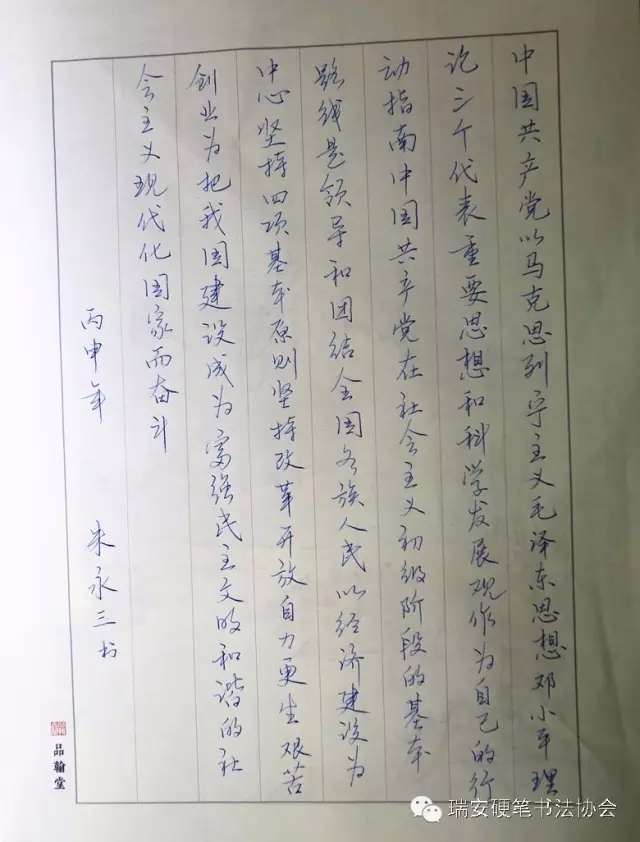 中国共产党以马克思列宁主义毛泽东思想邓小平理
论三个代表重要思想和科学发展观作为自己的行
动指南中国共产党在社会主义初级阶段的基本
路线是领导和团结全国各族人民以经济建设为
中心坚持四项基本原则坚持改革开放自力更生艰苦
创业为把我国建设成为富强民主文明和谐的社
会主义现代化国家而奋斗
丙申年 朱永三书
品翰堂
瑞安硬笔书法协会